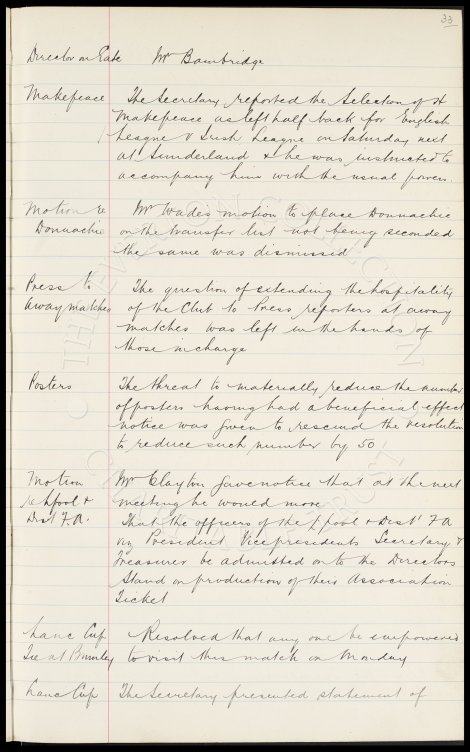 33
Director on Gate Mr Bainbridge
Makepeace The Secretary reported the Selection of H
Makepeace as left half back for English
League v Irish League on Saturday next
at Sunderland & he was instructed to
accompany him with the usual powers.
Motion re Mr Wade's motion to place Donnachie
Donnachie on the transfer list not being seconded
the same was dismissed
Press to The question of extending the hospitality
away matches of the Club to Press reporters at away
matches was left in the hands of
those in charge
Posters The threat to materially reduce the number
of posters having had a beneficial effect
notice was given to rescind the resolution
to reduce such number by 50
Motion Mr Clayton gave notice that at the next
re L'pool & meeting he would move
Dist F.A. That the officers of the L'pool & Dist F A
viz President Vice presidents Secretary &
Treasurer be admitted on to the Directors
Stand on production of their Association
Ticket
Lanc Cup Resolved that any one be empowered
Tie at Burnley to visit this match on Monday
Lanc Cup The Secretary presented statement of